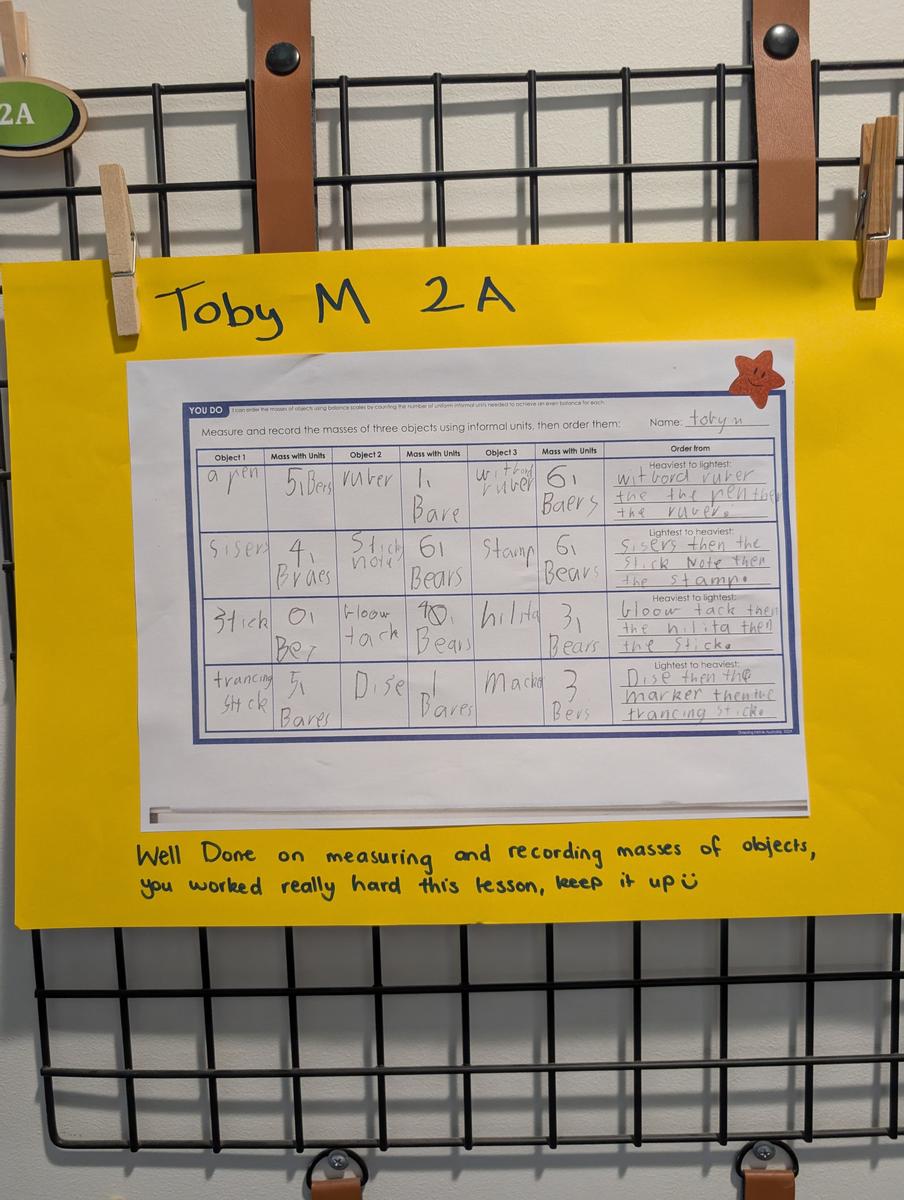 2A
Toby M 2A
YOU DO I can order the masses of objects using balance scales by counting the number of uniform informal units needed to achieve an even balance for each.
Measure and record the masses of three objects using informal units, then order them: Name: toby m
Object 1 Mass with Units Object 2 Mass with Units Object 3 Mass with Units Order from
a pen 5, Bers ruber 1, Bare witbord ruber 6, Baers
Heaviest to lightest:
witbord ruber
the the pen then
the ruber.
sisers 4, Braes Stick note 6, Bears Stamp 6, Bears
Lightest to heaviest:
Sisers then the
Stick Note then
the stamp.
Stick 0, Ber bloow tack 10, Bears hilita 3, Bears
Heaviest to lightest:
bloow tack then
the hilita then
the Stick.
trancing stick 5, Bares Dise 1 Bares 3 Bers
Lightest to heaviest:
Dise then the
marker then the
trancing stick.
Well Done on measuring and recording masses of objects,
you worked really hard this lesson, keep it up